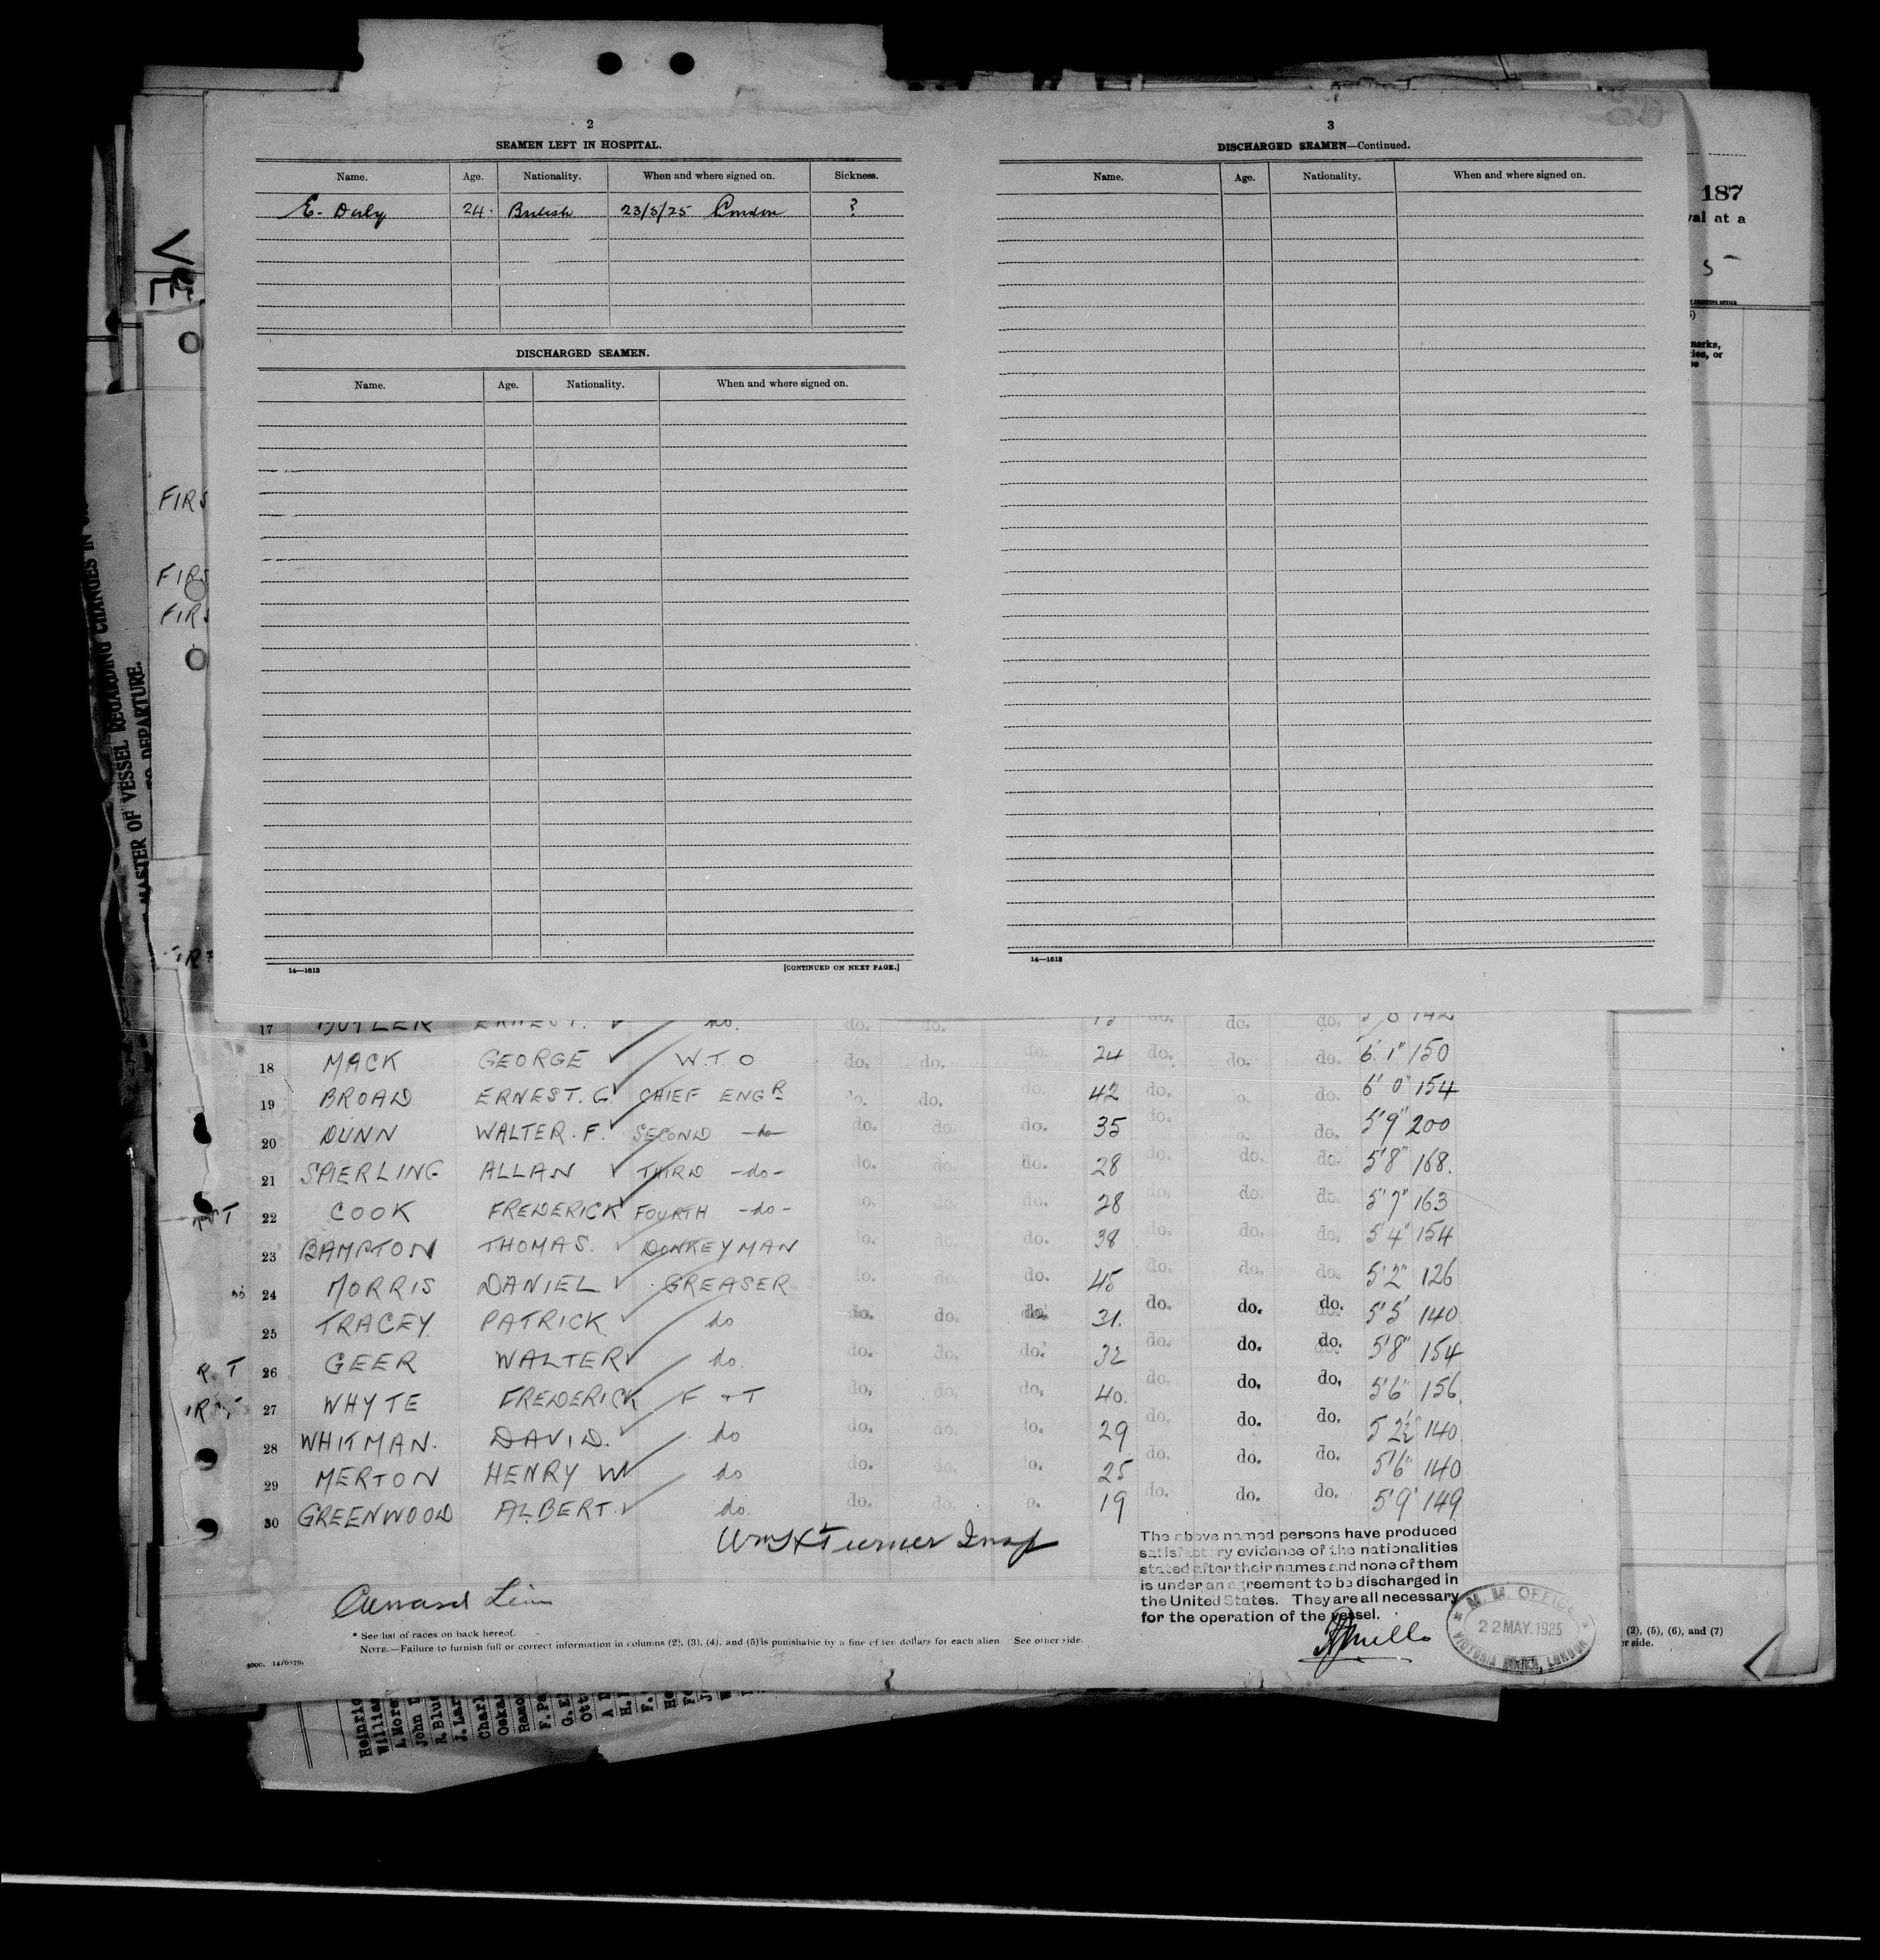 2
SEAMEN LEFT IN HOSPITAL.
Name. Age. Nationality. When and where signed on. Sickness.
E. Daly 24. British 23/5/25 London ?
DISCHARGED SEAMEN.
Name. Age. Nationality. When and where signed on.
14—1613 [CONTINUED ON NEXT PAGE.]
3
DISCHARGED SEAMEN—Continued.
Name. Age. Nationality. When and where signed on.
14—1613
187
val at a
VE
FIRS
FIRS
FIRS
MASTER OF VESSEL REGARDING CHANGES IN
TO DEPARTURE.
17 BUTLER ERNEST. do. do. do. do. do. do. 142
18 MACK GEORGE W.T.O do. do. do. 24 do. do. do. 6' 1" 150
19 BROAD ERNEST. G. CHIEF ENGR do. do. 42 do. do. 6' 0" 154
20 DUNN WALTER. F. SECOND -do- do. do. do. 35 do. do. 5'9" 200
21 SPIERLING ALLAN THIRD -do- do. do. do. 28 do. do. do. 5'8" 168.
22 COOK FREDERICK FOURTH -do- do. do. do. 28 do. do. do. 5'7" 163
23 BAMPTON THOMAS. DONKEYMAN do. do. 38 do. do. do. 5'4" 154
24 MORRIS DANIEL GREASER do. do. do. 45 do. do. do. 5'2" 126
25 TRACEY. PATRICK do do. do. do. 31. do. do. do. 5'5' 140
26 GEER WALTER do. do. do. do. 32 do. do. do. 5'8" 154
27 WHYTE FREDERICK F & T do. do. do. 40. do. do. do. 5'6" 156.
28 WHITMAN. DAVID. do do. do. do. 29 do. do. do. 5 2½ 140.
29 MERTON HENRY W do do. do. do. 25 do. do. do. 5'6" 140
30 GREENWOOD ALBERT. do. do. do. 19 do. do. do. 5'9' 149.
Wm H Turner Insp
The above named persons have produced
satisfactory evidence of the nationalities
stated after their names and none of them
is under an agreement to be discharged in
the United States. They are all necessary
for the operation of the vessel.
M. M. OFFICE
22 MAY. 1925
VICTORIA DOCKS, LONDON
Cunard Line
* See list of races on back hereof.
NOTE.—Failure to furnish full or correct information in columns (2), (3), (4), and (5) is punishable by a fine of ten dollars for each alien See other side.
5000. 14/6579.
(2), (5), (6), and (7)
er side.